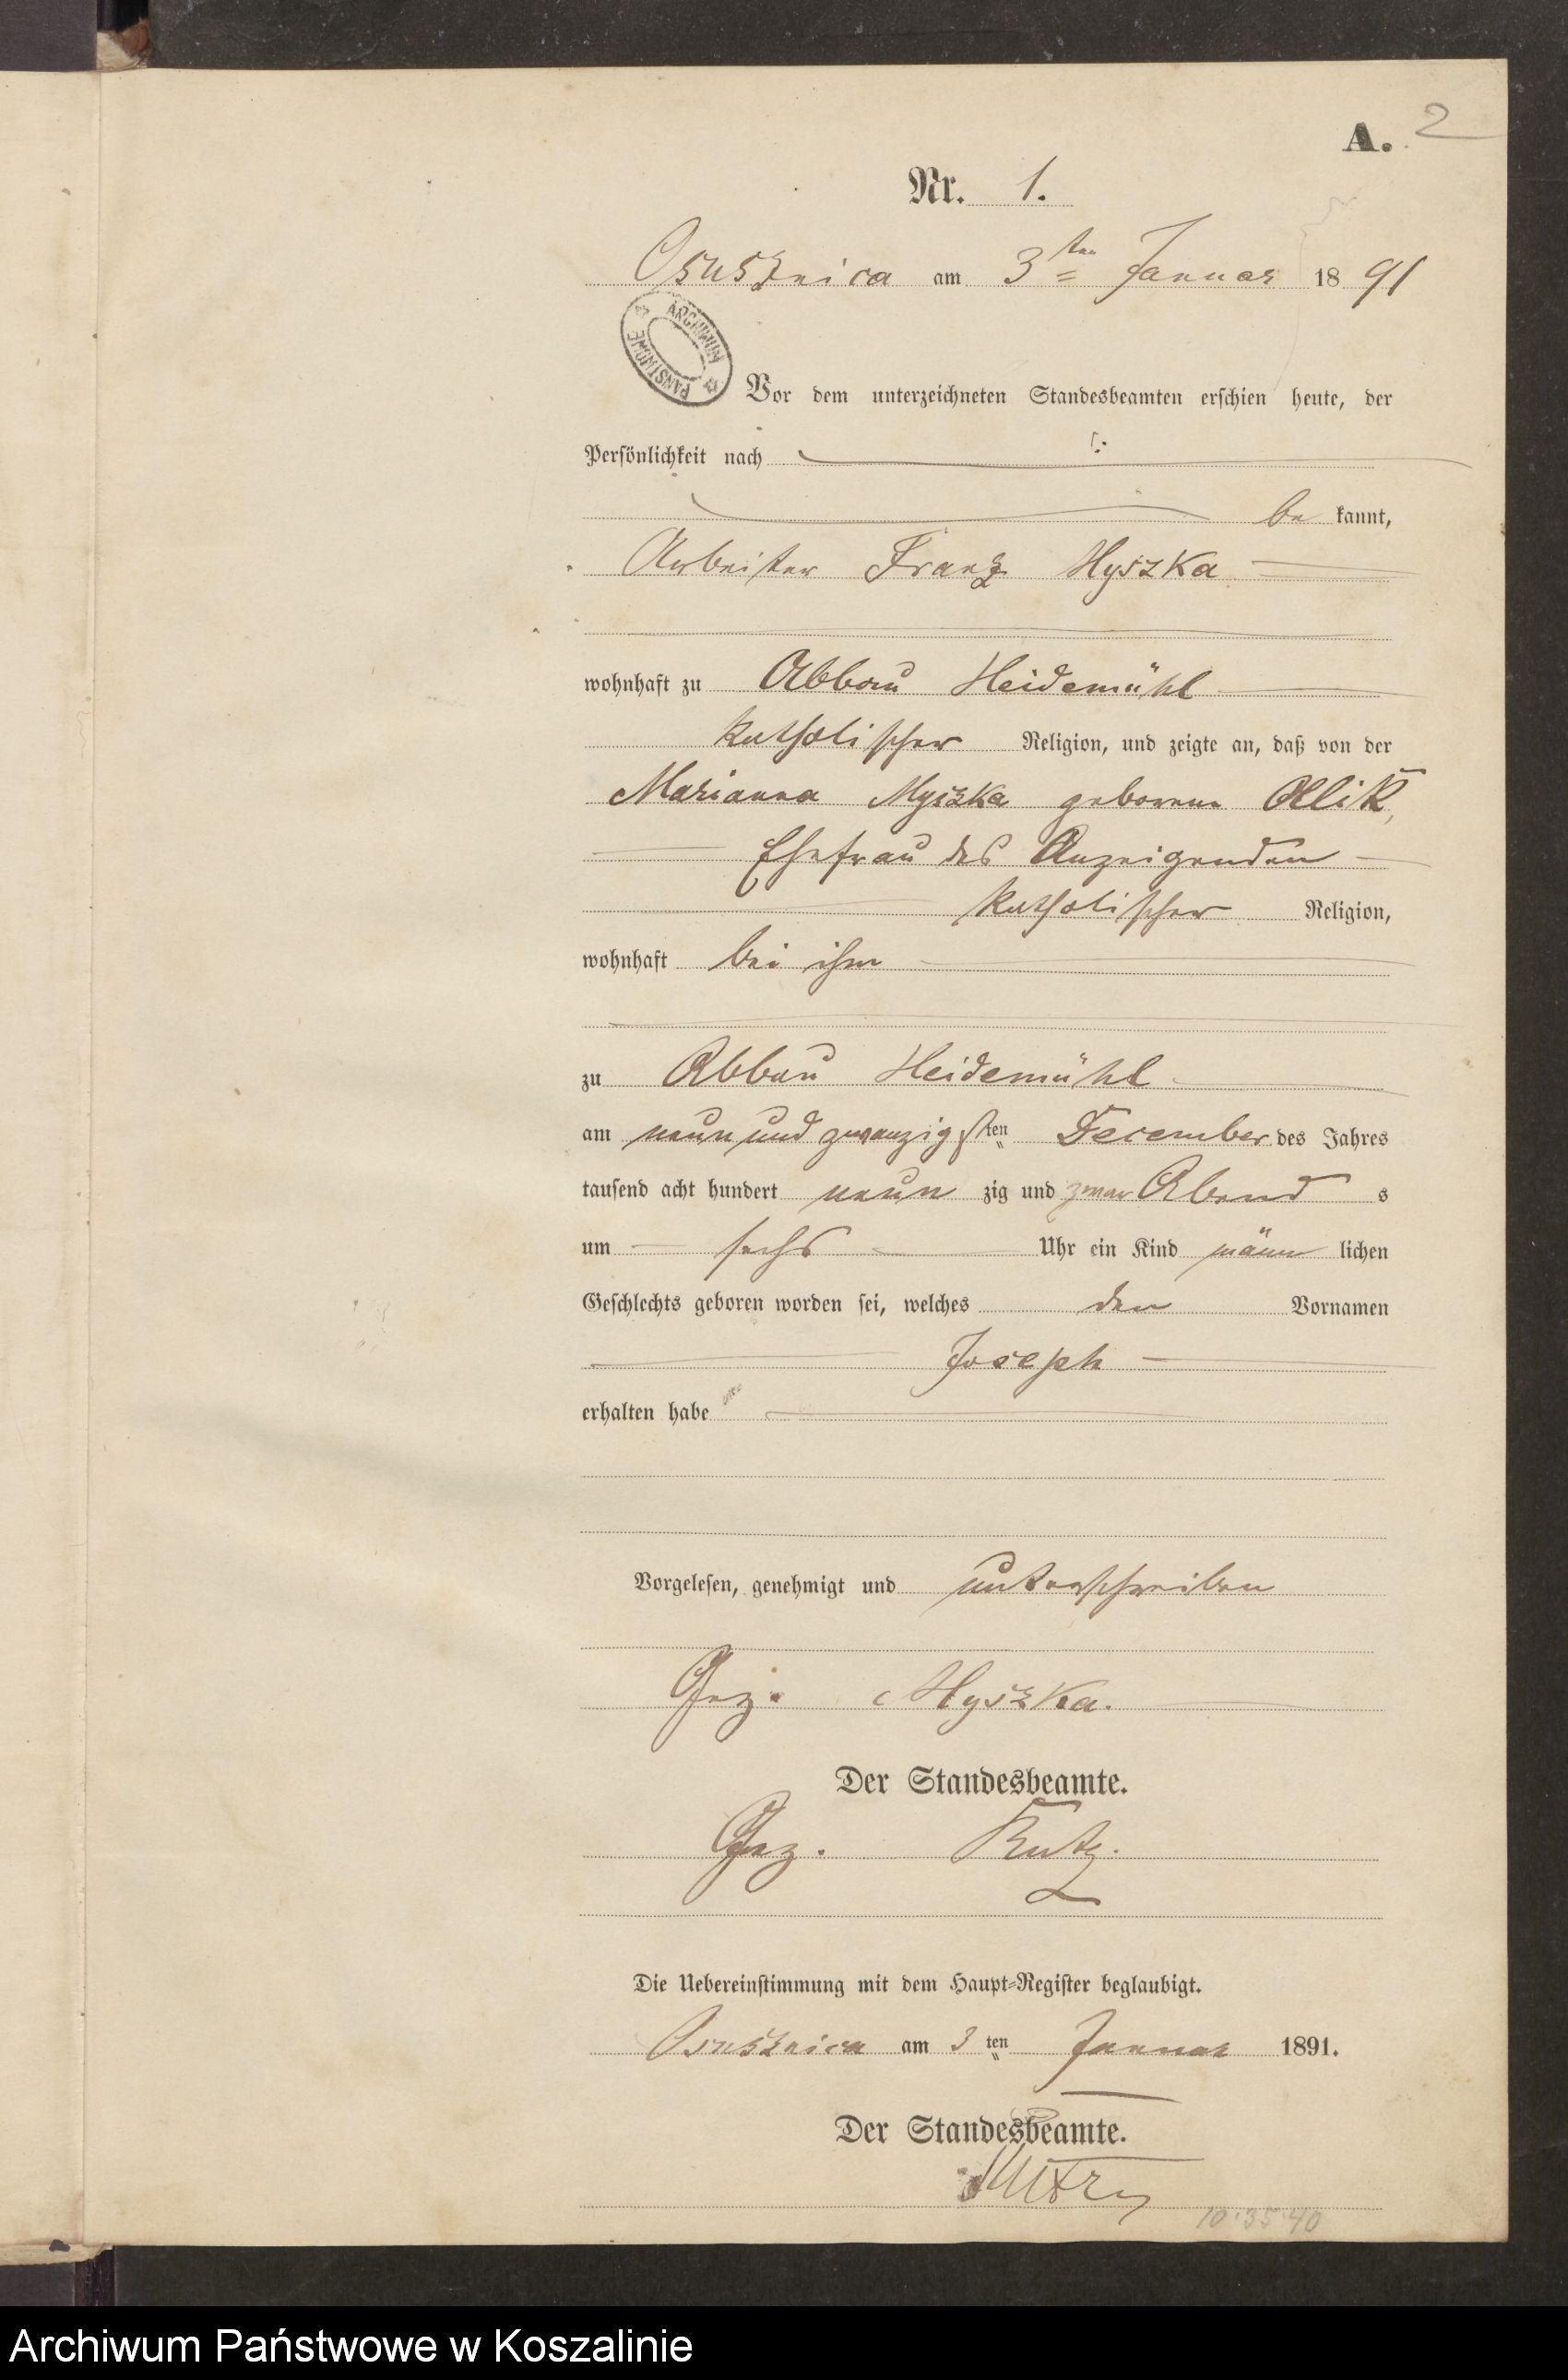 A. 2
Nr. 1.
Osusznica am 3ten Januar 1891
ARCHIWUM PAŃSTWOWE
Vor dem unterzeichneten Standesbeamten erschien heute, der
Persönlichkeit nach
be kannt,
Arbeiter Franz Myszka
wohnhaft zu Abbau Heidemühl
katholischer Religion, und zeigte an, daß von der
Marianna Myszka geborene Ollik,
Ehefrau des Anzeigenden
katholischer Religion,
wohnhaft bei ihm
zu Abbau Heidemühl
am neun und zwanzigsten December des Jahres
tausend acht hundert neun zig und zwar Abend s
um sechs Uhr ein Kind männ lichen
Geschlechts geboren worden sei, welches den Vornamen
Joseph
erhalten habe
Vorgelesen, genehmigt und unterschrieben
Gez. Myszka.
Der Standesbeamte.
Gez. Kutz.
Die Uebereinstimmung mit dem Haupt-Register beglaubigt.
Osusznica am 3ten Januar 1891.
Der Standesbeamte.
10.35.40
Archiwum Państwowe w Koszalinie